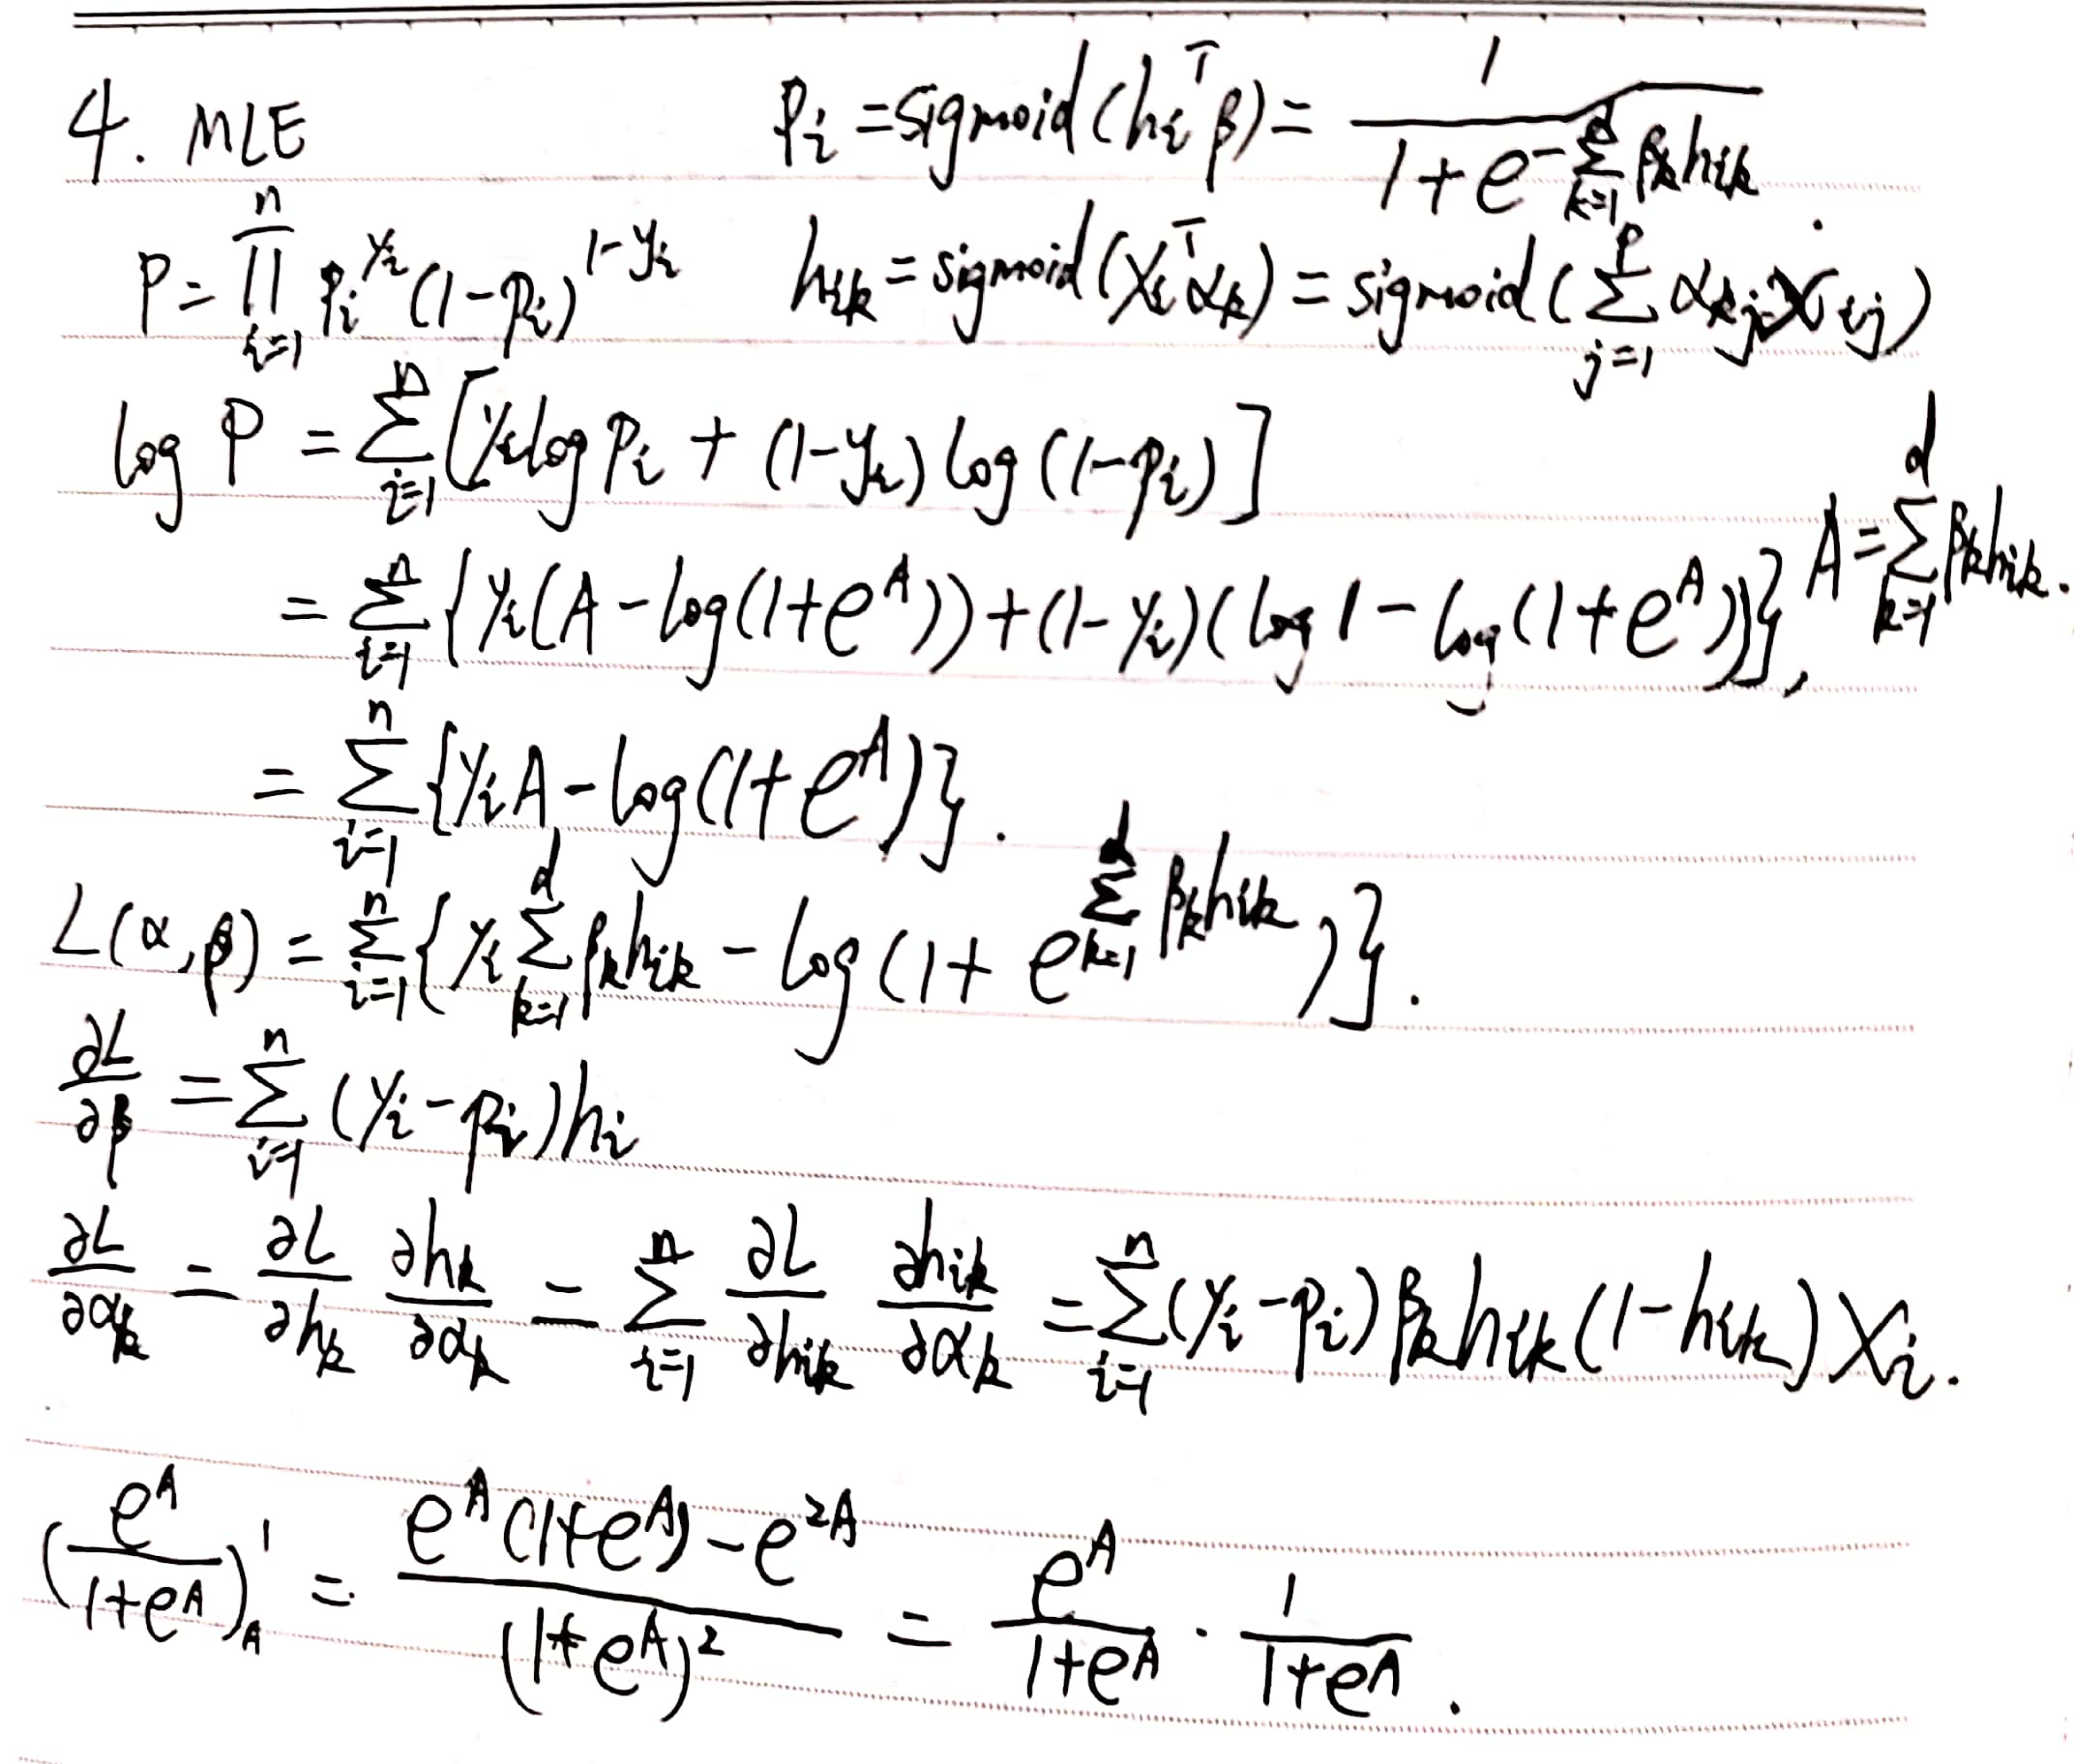 4. MLE  p_i = sigmoid(h_i^T β) = 1 / (1 + e^{-∑_{k=1}^{d} β_k h_{ik}}).
P = ∏_{i=1}^{n} p_i^{y_i} (1-p_i)^{1-y_i}  h_{ik} = sigmoid(X_i^T α_k) = sigmoid(∑_{j=1}^{p} α_{kj} X_{ij})
log P = ∑_{i=1}^{n} [y_i log p_i + (1-y_i) log(1-p_i)]
= ∑_{i=1}^{n} {y_i(A - log(1+e^A)) + (1-y_i)(log 1 - log(1+e^A))}, A = ∑_{k=1}^{d} β_k h_{ik}.
= ∑_{i=1}^{n} {y_i A - log(1+e^A)}.
L(α,β) = ∑_{i=1}^{n} {y_i ∑_{k=1}^{d} β_k h_{ik} - log(1 + e^{∑_{k=1}^{d} β_k h_{ik}})}.
∂L/∂β = ∑_{i=1}^{n} (y_i - p_i) h_i
∂L/∂α_k = ∂L/∂h_k ∂h_k/∂α_k = ∑_{i=1}^{n} ∂L/∂h_{ik} ∂h_{ik}/∂α_k = ∑_{i=1}^{n} (y_i - p_i) β_k h_{ik} (1-h_{ik}) X_i.
(e^A / (1+e^A))'_A = (e^A(1+e^A) - e^{2A}) / (1+e^A)^2 = e^A / (1+e^A) · 1 / (1+e^A).